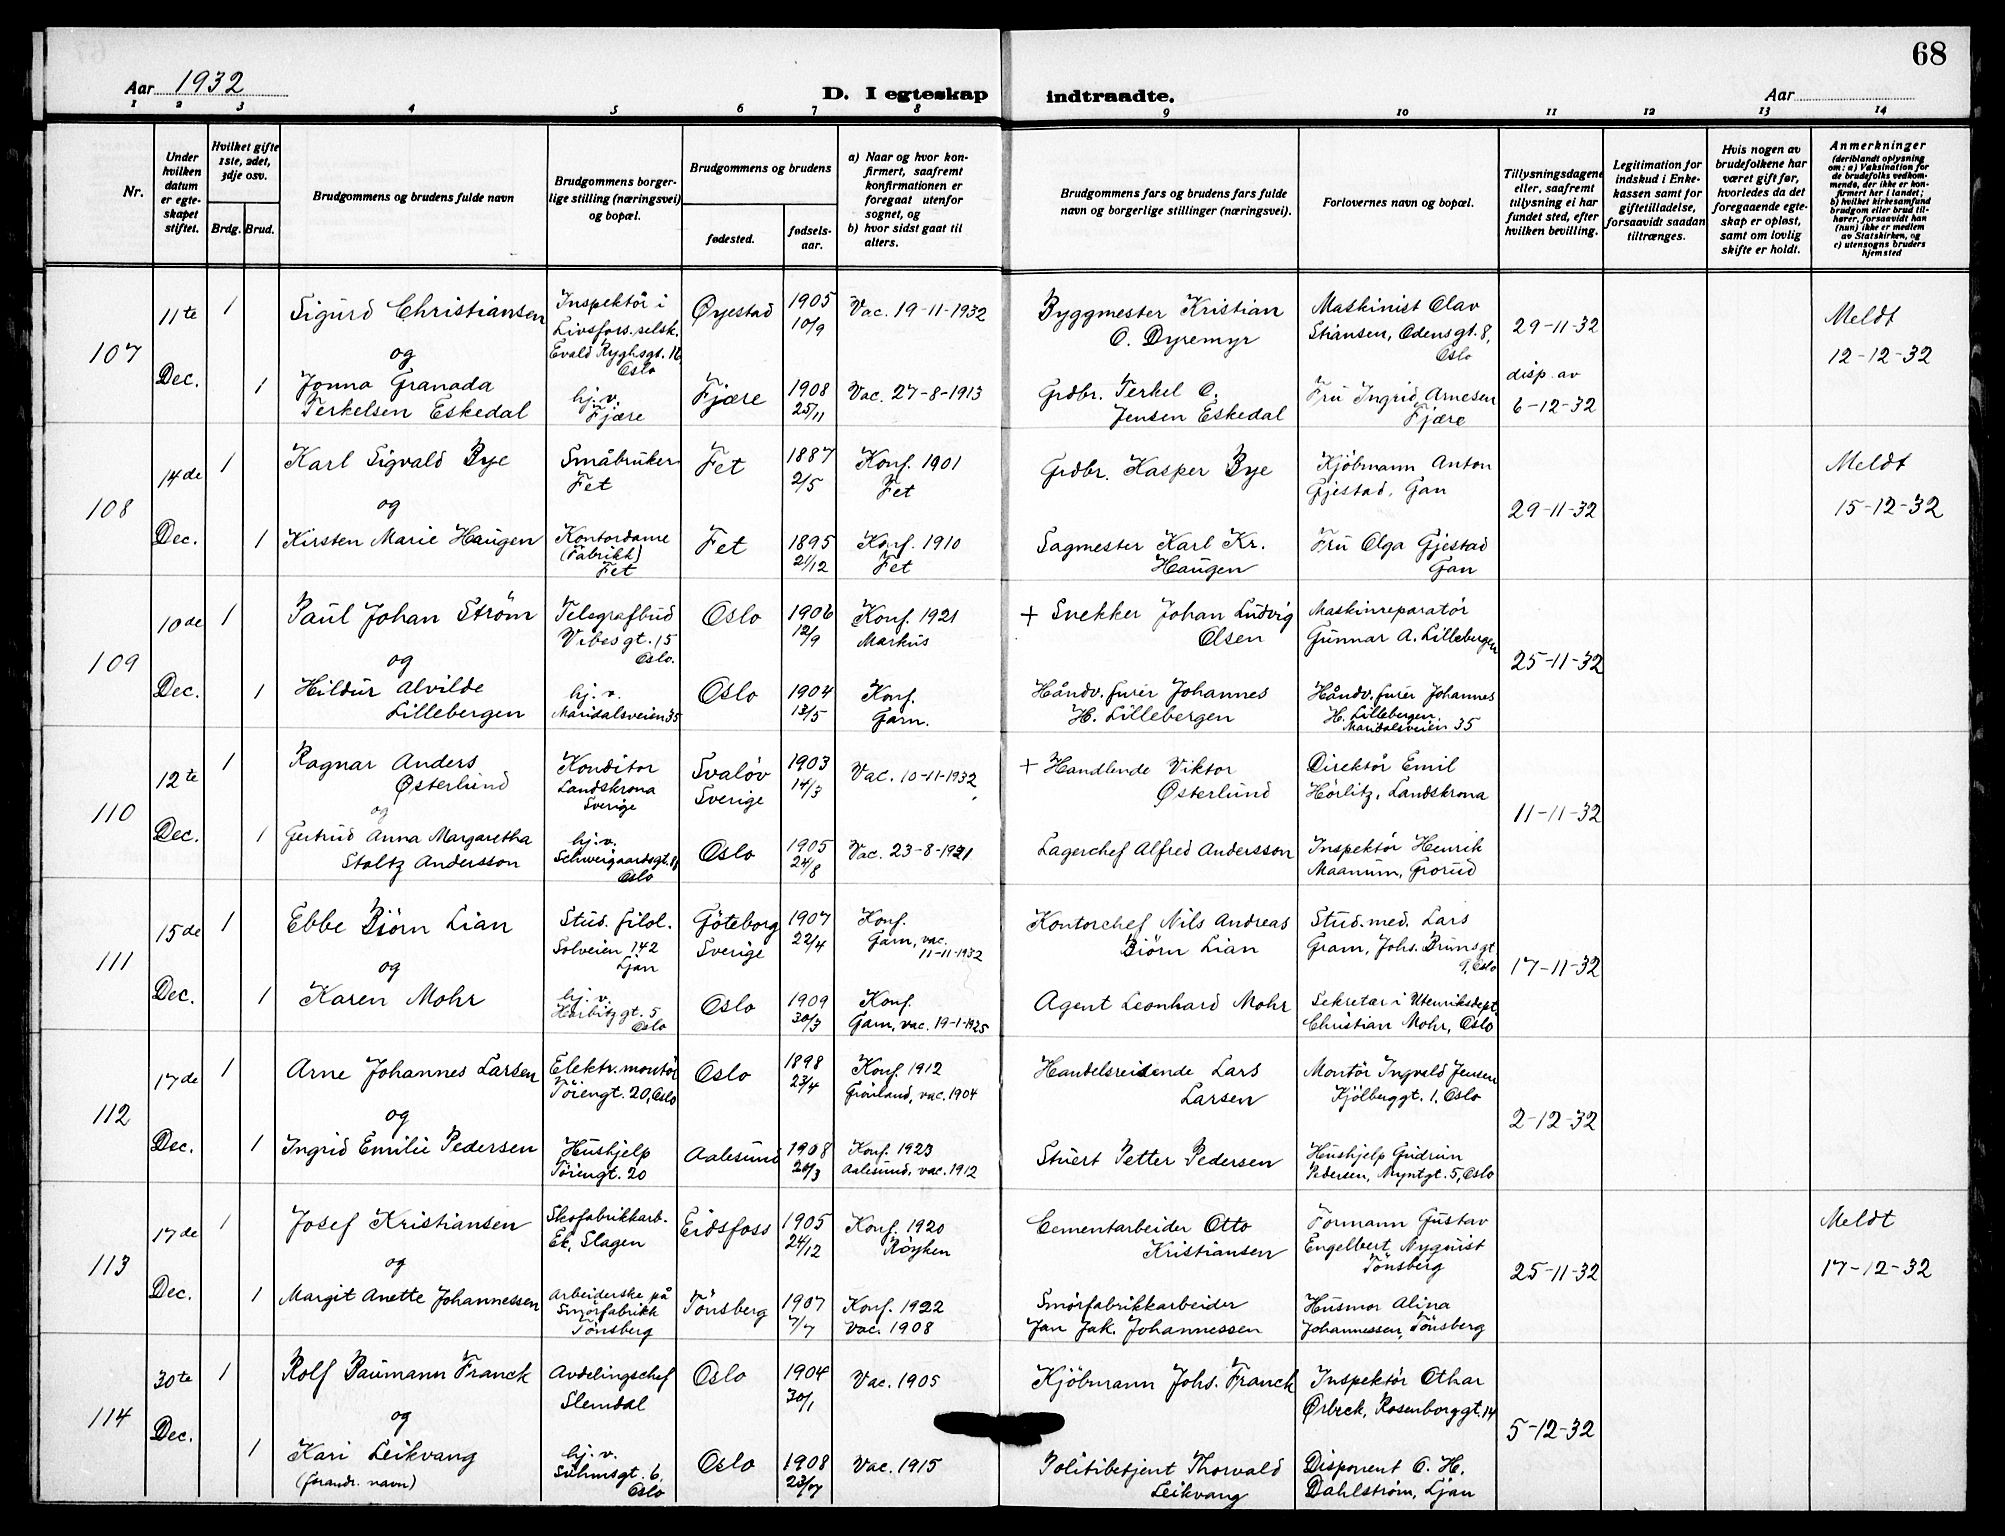 68
Aar 1932
D. I egteskap indtraadte.
Aar
1 2 3 4 5 6 7 8 9 10 11 12 13 14
Nr.
Under hvilken datum er egte-skapet stiftet.
Hvilket gifte 1ste, 2det, 3dje osv.
Brdg. Brud.
Brudgommens og brudens fulde navn
Brudgommens borger-lige stilling (næringsvei) og bopæl.
Brudgommens og brudens
fødested.
fødsels-aar.
a) Naar og hvor kon-firmert, saafremt konfirmationen er foregaat utenfor sognet, og
b) hvor sidst gaat til alters.
Brudgommens fars og brudens fars fulde navn og borgerlige stillinger (næringsvei).
Forlovernes navn og bopæl.
Tillysningsdagene eller, saafremt tillysning ei har fundet sted, efter hvilken bevilling.
Legitimation for indskud i Enke-kassen samt for giftetilladelse, forsaavidt saadan tiltrænges.
Hvis nogen av brudefolkene har været gift før, hvorledes da det foregaaende egte-skap er opløst, samt om lovlig skifte er holdt.
Anmerkninger
(deriblandt oplysning om: a) Vaksination for de brudefolks vedkom-mende, der ikke er kon-firmert her i landet; b) hvilket kirkesamfund brudgom eller brud til-hører, forsaavidt han (hun) ikke er medlem av Statskirken, og c) utensogns bruders hjemsted
107 11te Dec.
1 Sigurd Christiansen
Inspektør i Livsfors.selsk. Evald Ryghsgt. 16 Oslo
Øyestad 1905 10/9
Vac. 19-11-1932
Byggmester Kristian O. Dyremyr
Maskinist Olav Stiansen, Odensgt. 8, Oslo
29-11-32
disp. av 6-12-32
Meldt 12-12-32
og
1 Jonna Granada Terkelsen Eskedal
hj. v. Fjære
Fjære 1908 25/11
Vac. 27-8-1913
Grdbr. Terkel O. Jensen Eskedal
Fru Ingrid Arnesen Fjære
108 14de Dec.
1 Karl Sigvald Bye
Småbruker Fet
Fet 1887 2/5
Konf. 1901 Fet
Grdbr. Kasper Bye
Kjøbmann Anton Gjestad, Gan
29-11-32
Meldt 15-12-32
og
1 Kirsten Marie Haugen
Kontordame (Fabrikk) Fet
Fet 1895 21/12
Konf. 1910 Fet
Sagmester Karl Kr. Haugen
Fru Olga Gjestad Gan
109 10de Dec.
1 Paul Johan Strøm
Telegrafbud Vibesgt. 15 Oslo.
Oslo 1906 12/9
Konf. 1921 Markus
+ Snekker Johan Ludvig Olsen
Maskinreparatør Gunnar A. Lillebergen
25-11-32
og
1 Hildur Alvilde Lillebergen
hj. v. Maridalsveien 35
Oslo 1904 13/5
Konf. Garn.
Håndv. furér Johannes H. Lillebergen
Håndv. furér Johannes H. Lillebergen, Maridalsveien 35
110 12te Dec.
1 Ragnar Anders Østerlund
Konditor Landskrona Sverige
Svaløv Sverige 1903 14/3
Vac. 10-11-1932
+ Handlende Viktor Østerlund
Direktør Emil Hörlitz, Landskrona
11-11-32
og
1 Gertrud Anna Margaretha Stoltz Andersson
hj. v. Schweigaardsgt. Oslo
Oslo 1905 24/8
Vac. 23-8-1921
Lagerchef Alfred Andersson
Inspektør Henrik Maanum, Grorud
111 15de Dec.
1 Ebbe Bjørn Lian
Stud. filol. Solveien 142 Ljan
Göteborg Sverige 1907 22/4
Konf. Garn, vac. 11-11-1932
Kontorchef Nils Andreas Bjørn Lian
Stud. med. Lars Gram, Johs. Brunsgt 9, Oslo
17-11-32
og
1 Karen Mohr
hj. v. Harbitzgt. 5 Oslo
Oslo 1909 30/3
Konf. Garn, vac. 19-1-1925
Agent Leonhard Mohr
Sekretær i Utenriksdept. Christian Mohr, Oslo
112 17de Dec.
1 Arne Johannes Larsen
Elektr. montør Töiengt. 20, Oslo
Oslo 1898 23/4
Konf. 1912 Grønland, vac. 1904
Handelsreisende Lars Larsen
Montör Ingvald Jensen Kjölberggt. 1, Oslo
2-12-32
og
1 Ingrid Emilie Pedersen
Hushjelp Töiengt. 20
Aalesund 1908 20/3
Konf. 1923 Aalesund, vac. 1912
Stuert Petter Pedersen
Hushjelp Gudrun Pedersen, Myntgt. 5, Oslo
113 17de Dec.
1 Josef Kristiansen
Skofabrikkarb. Ek, Slagen
Eidsfoss 1905 24/12
Konf. 1920 Röyken
Cementarbeider Otto Kristiansen
Formann Gustav Engelbert Nyquist Tönsberg
25-11-32
Meldt 17-12-32
og
1 Margit Anette Johannessen
Arbeiderske på Smörfabrikk Tönsberg
Tönsberg 1907 7/7
Konf. 1922 vac. 1908
Smörfabrikkarbeider Jan Jak. Johannessen
Husmor Alina Johannessen, Tönsberg
114 30te Dec.
1 Rolf Paumann Franck
Avdelingschef Slemdal
Oslo 1904 30/1
Vac. 1905
Kjöbmann Johs. Franck
Inspektør Othar Ørbeck, Rosenborggt. 14
5-12-32
og
1 Kari Leikvang (forandr. navn)
hj. v. Suhmsgt. 6, Oslo
Oslo 1908
Vac. 1915
Politibetjent Thorvald Leikvang
Disponent O. H. Dahlstrøm, Ljan